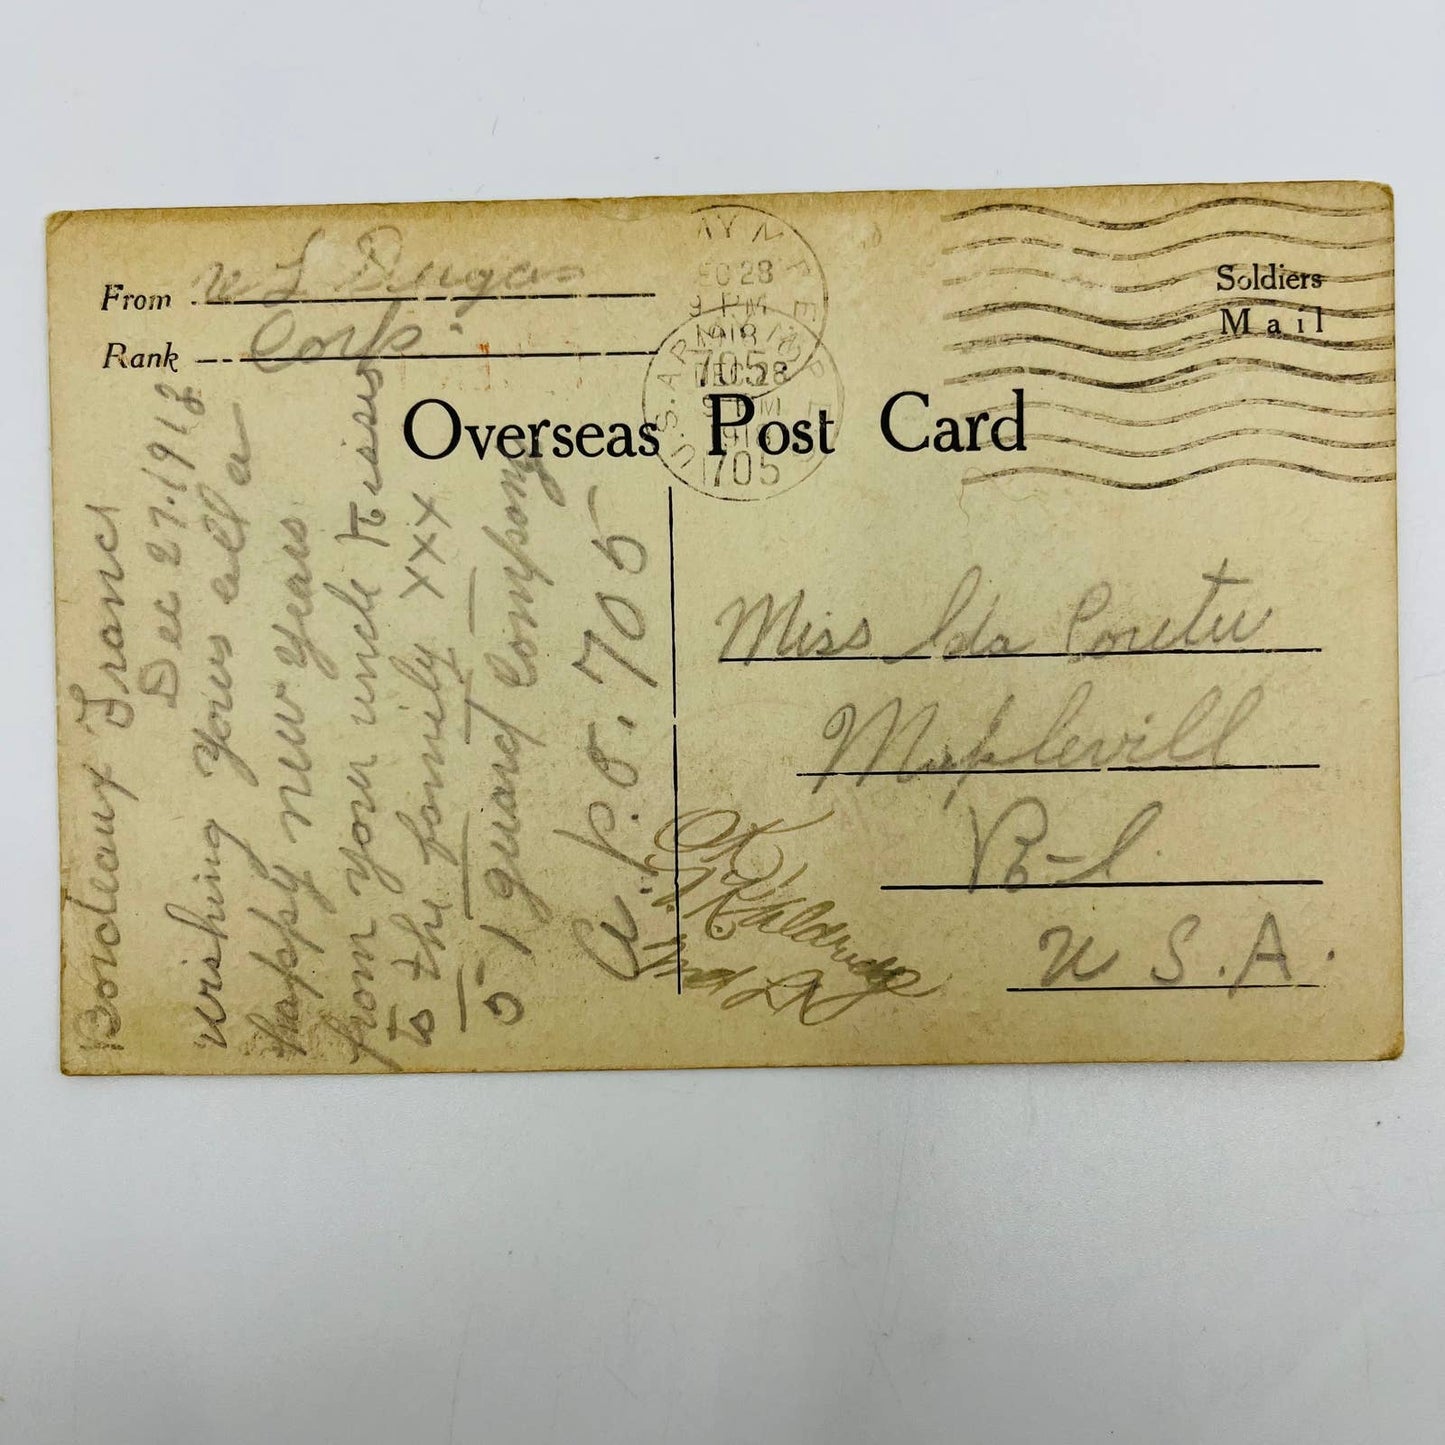 From W L Dugas
Rank Corp.
Soldiers
Mail
Overseas Post Card
DEC 28
9 P.M.
1918
705
U.S. ARMY M.P.E.S.
DEC 28
9 P.M
191
705
Bordeaux France
Dec 27. 1918
wishing yous all a
happy new years
from your uncle kisses
to the family xxx
51 guard Company
a.p.o. 705
Miss Ida
Maplevill
R-I.
U.S.A.